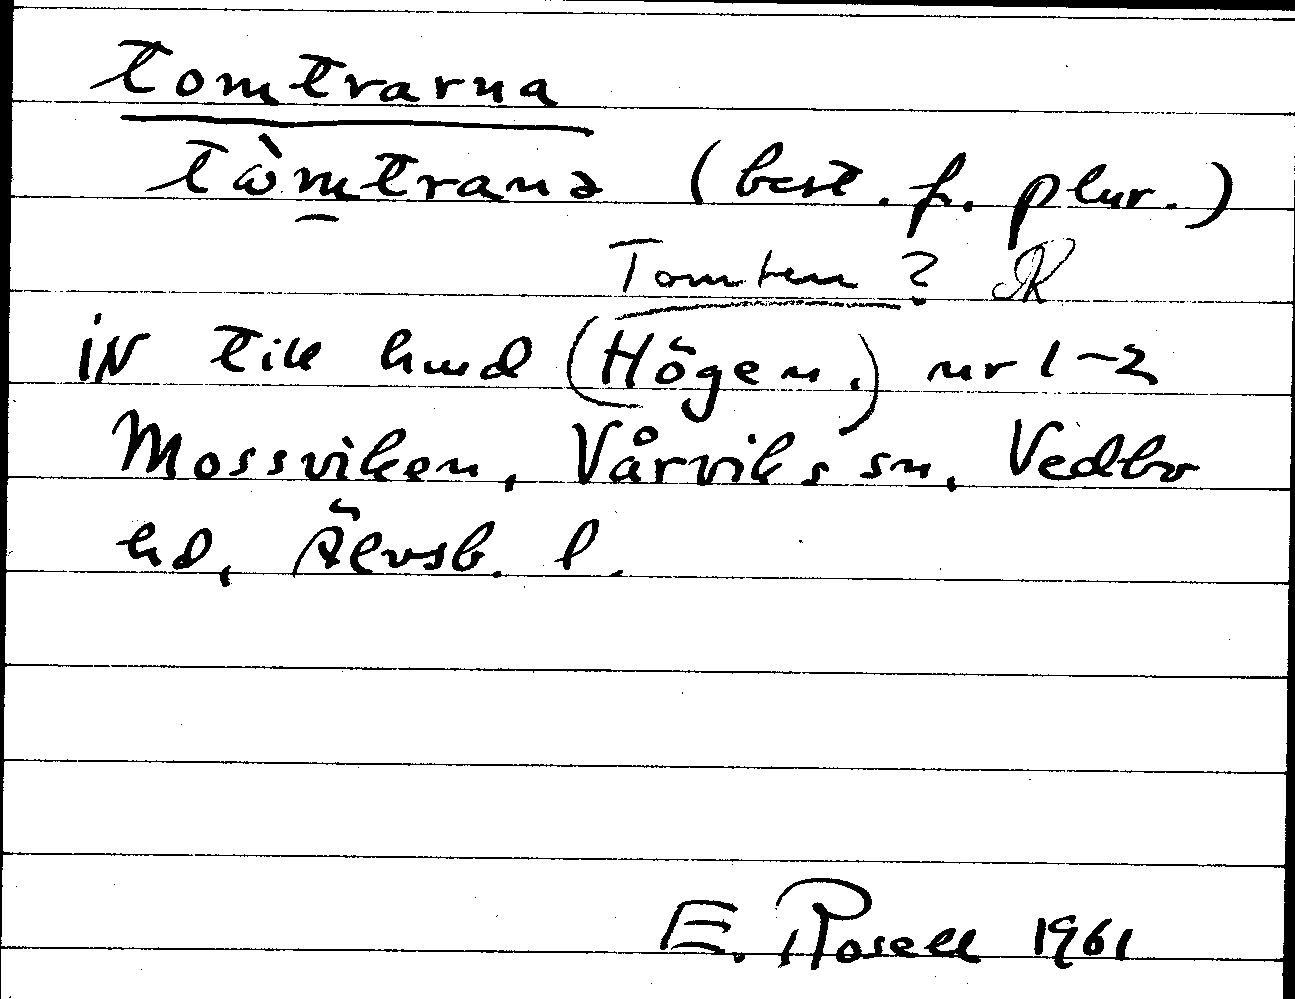 tomtrarna
tòmtrana (best. f. plur.)
Tomten?
IN till hmd (Högen.) nr 1-2
Mossviken, Vårviks sn, Vedbo
hd, Älvsb. l.
E. Rosell 1961